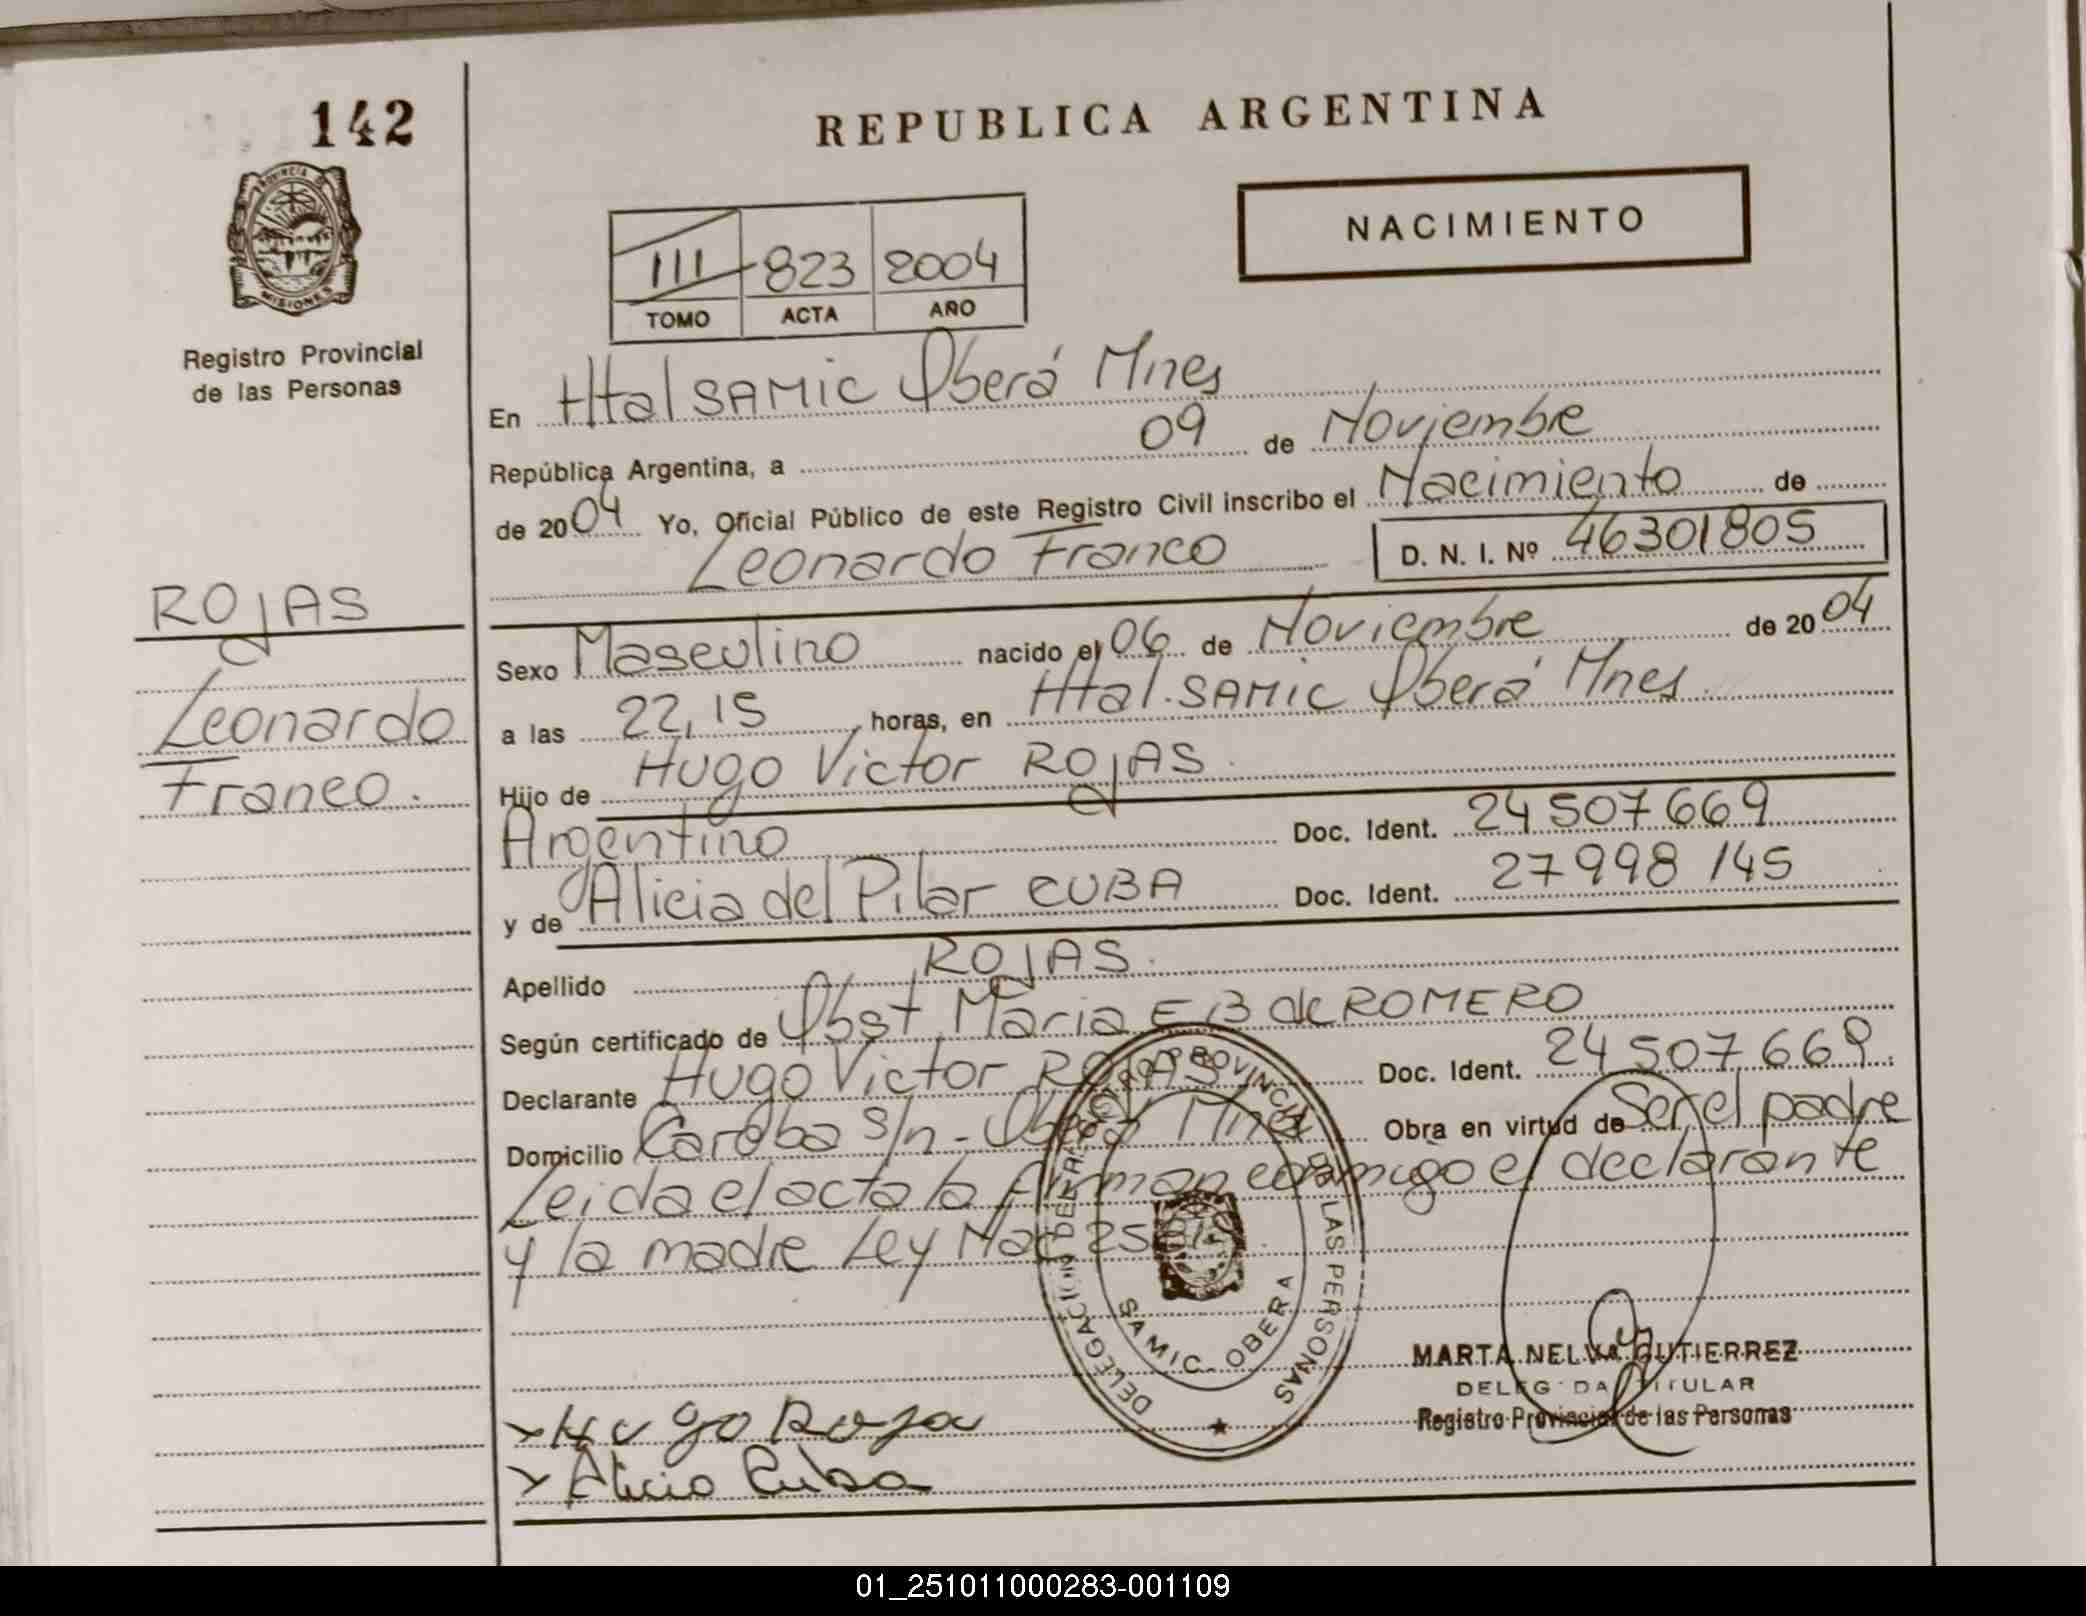 142
REPUBLICA ARGENTINA
PROVINCIA DE
MISIONES
NACIMIENTO
III 823 2004
TOMO ACTA AÑO
Registro Provincial
de las Personas
En Htal SAMIC Oberá Mnes
República Argentina, a 09 de Noviembre
de 2004 Yo, Oficial Público de este Registro Civil inscribo el Nacimiento de
Leonardo Franco D. N. I. Nº 46301805
ROJAS
Leonardo
Franco.
Sexo Masculino nacido el 06 de Noviembre de 2004
a las 22,15 horas, en Htal. SAMIC Oberá Mnes
Hijo de Hugo Victor ROJAS
Argentino Doc. Ident. 24 507 669
y de Alicia del Pilar CUBA Doc. Ident. 27998 145
Apellido ROJAS.
Según certificado de Obst Maria E B de ROMERO
Declarante Hugo Victor ROJAS Doc. Ident. 24 507 669
Domicilio s/n - Oberá Mnes Obra en virtud de Ser el padre
Leida el acta la firman conmigo el declarante
y la madre Ley Nac
DELEGACION DEL REGISTRO PROVINCIAL DE LAS PERSONAS
SAMIC - OBERA
MARTA NELVA GUTIERREZ
DELEGADA TITULAR
Registro Provincial de las Personas
Hugo Roja
Alicia Cuba
01_251011000283-001109